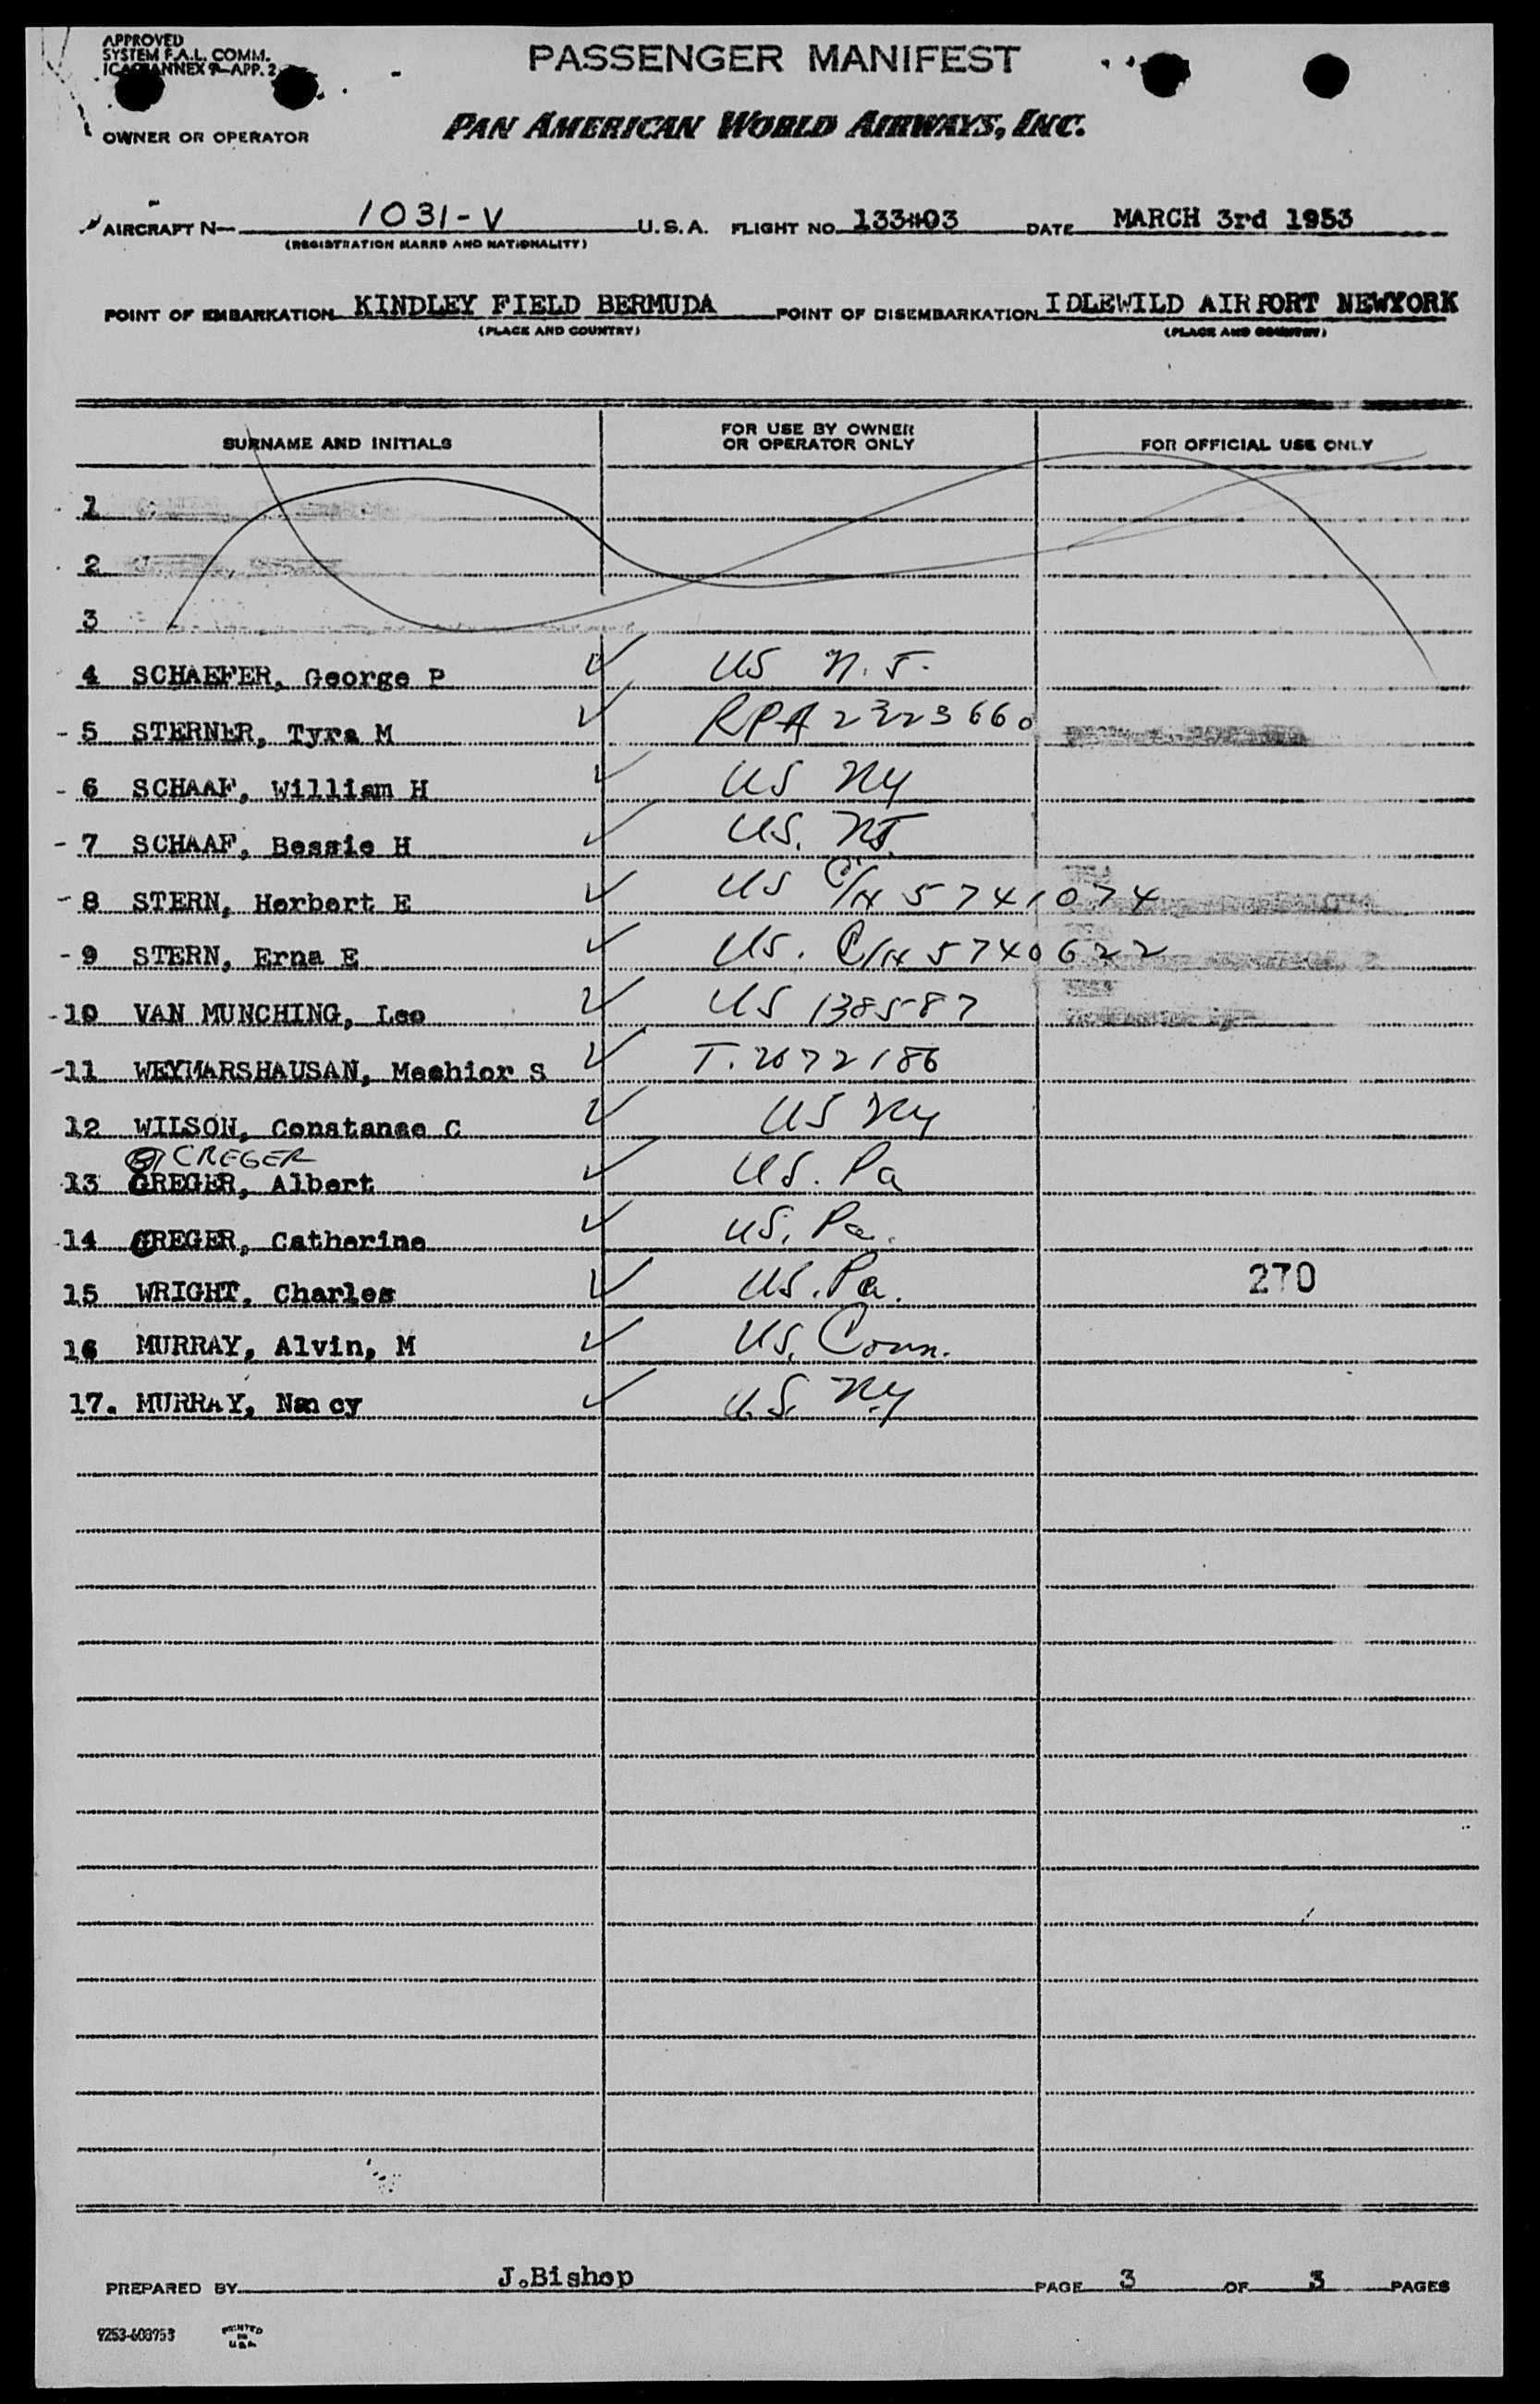 APPROVED
SYSTEM F.A.L. COMM.
ANNEX 9-APP. 2
PASSENGER MANIFEST
OWNER OR OPERATOR
PAN AMERICAN WORLD AIRWAYS, INC.
AIRCRAFT N- 1031-V U.S.A. FLIGHT NO. 133#03 DATE MARCH 3rd 1953
(REGISTRATION MARKS AND NATIONALITY)
POINT OF EMBARKATION KINDLEY FIELD BERMUDA POINT OF DISEMBARKATION IDLEWILD AIRPORT NEWYORK
(PLACE AND COUNTRY) (PLACE AND COUNTRY)
SURNAME AND INITIALS FOR USE BY OWNER OR OPERATOR ONLY FOR OFFICIAL USE ONLY
1
2
3
4 SCHAEFER, George P US N.J.
5 STERNER, Tyra M RPA 2323660
6 SCHAAF, William H US NY
7 SCHAAF, Bessie H US. NJ.
8 STERN, Herbert E US C/N 5741074
9 STERN, Erna E US. C/N 5740622
10 VAN MUNCHING, Leo US 138587
11 WEYMARSHAUSAN, Mechior S T. 2672186
12 WILSON, Constanse C US NY
CREGER
13 GREGER, Albert US. Pa
14 CREGER, Catherine US. Pa.
15 WRIGHT, Charles US. Pa. 270
16 MURRAY, Alvin, M US. Conn.
17. MURRAY, Nancy U.S. N.Y
PREPARED BY J.Bishop PAGE 3 OF 3 PAGES
9253-603953 PRINTED IN U.S.A.